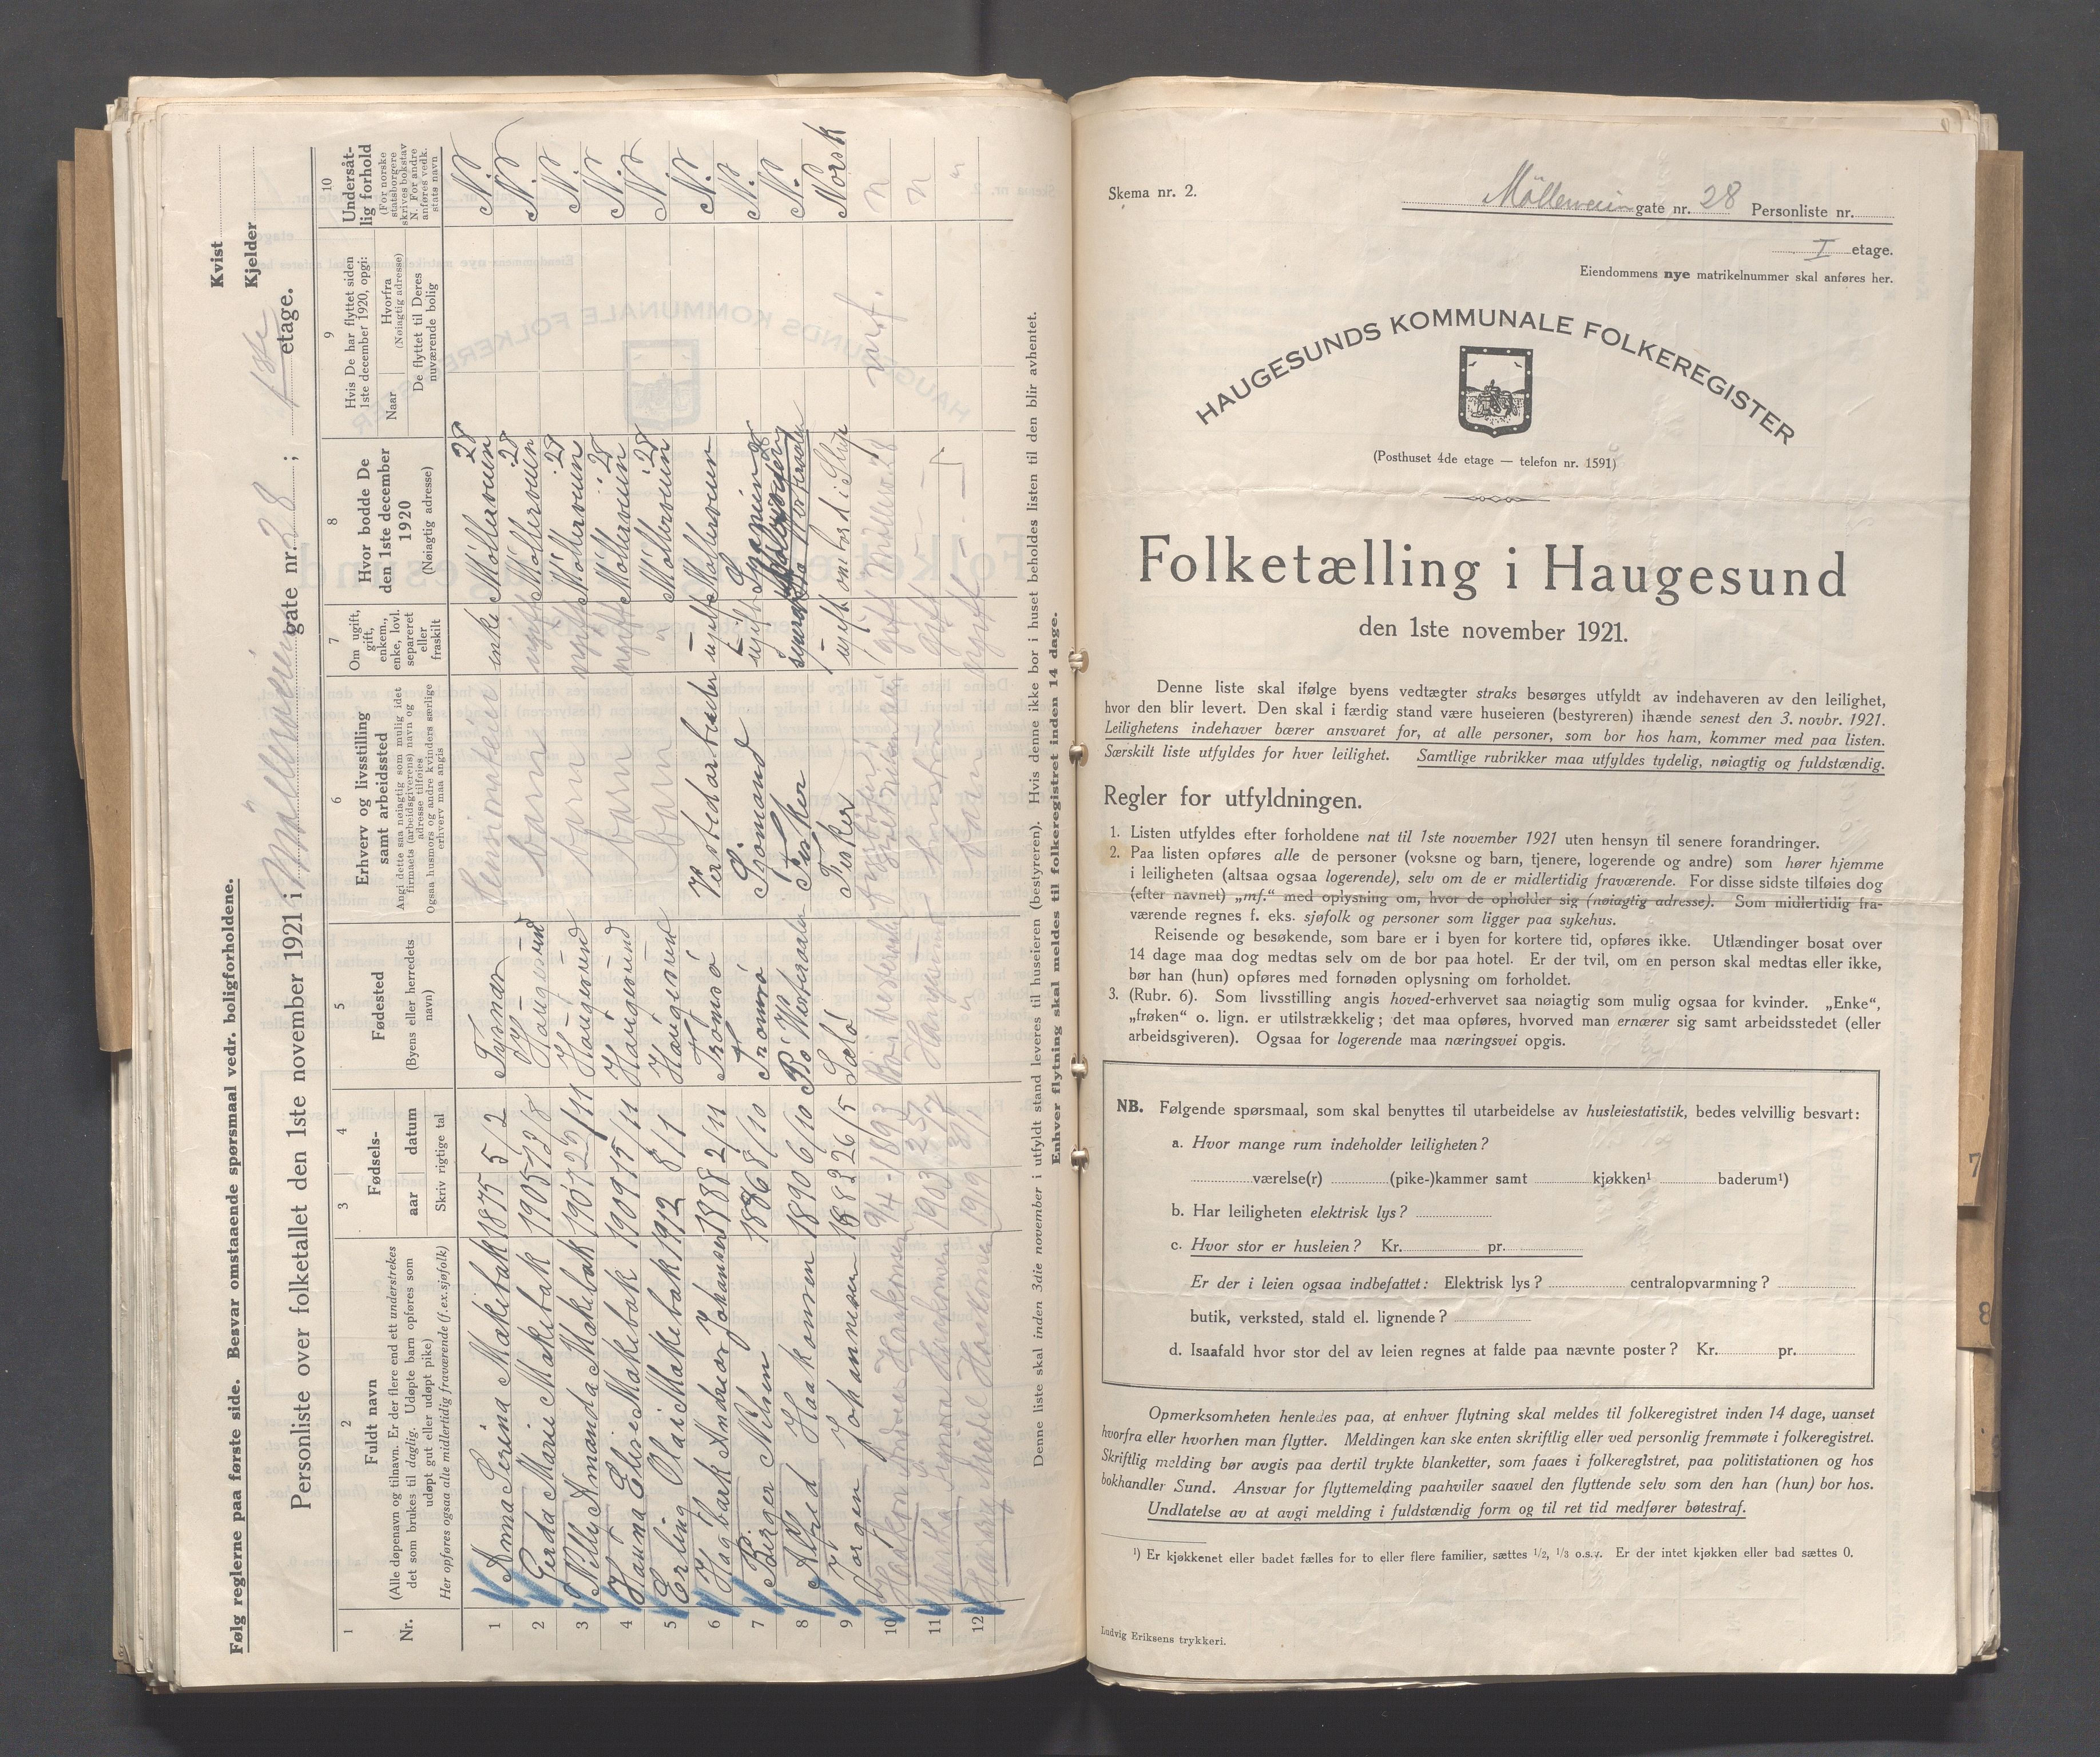 Følg reglerne paa første side. Besvar omstaaende spørsmaal vedr. boligforholdene.
Kvist
Kjelder
Personliste over folketallet den 1ste november 1921 i Møllerveien gate nr. 28 ; 1ste etage.
1
Nr.
2
Fuldt navn
(Alle døpenavn og tilnavn. Er der flere end ett understrekes
det som brukes til daglig. Udøpte barn opføres som
udøpt gut eller udøpt pike)
Her opføres ogsaa alle midlertidig fraværende (f.ex. sjøfolk)
3 4
Fødsels-
aar datum
Skriv rigtige tal
5
Fødested
(Byens eller herredets
navn)
6
Erhverv og livsstilling
samt arbeidssted
Angi dette saa nøiagtig som mulig idet
firmaets (arbeidsgiverens) navn og
adresse tilføies
Ogsaa husmors og andre kvinders særlige
erhverv maa angis
7
Om ugift,
gift,
enkem.,
enke, lovl.
separeret
eller
fraskilt
8
Hvor bodde De
den 1ste december
1920
(Nøiagtig adresse)
9
Hvis De har flyttet siden
1ste december 1920, opgi:
Naar
Hvorfra
(Nøiagtig adresse)
De flyttet til Deres
nuværende bolig
10
Undersåt-
lig forhold
(For norske
statsborgere
skrives bokstav
N. For andre
anføres vedk.
stats navn
1 Anna Serina Makebak 1875 5/2 enke Møllerveien 28 N.
2 Gerda Marie Makebak 1905 13/8 Haugesund barn ugift Møllerveien 28 N.
3 Nelly Amanda Makebak 1907 25/11 Haugesund barn ugift Møllerveien 28 N.
4 Hanna Elise Makebak 1909 15/11 Haugesund barn ugift Møllerveien 28 N.
5 Erling Olai Makebak 1912 8/1 Haugesund barn " Møllerveien 28 N.
6 Hagbark Andreas Johansen 1888 2/11 Tromsø Verstedarbeider ugift Møllerveien N.
7 Birger Nilsen 8/10 Tromsø Sømand ugift N.
8 Alfred Haakonsen 1890 6/10 Bø Westeraalen Fisker N.
9 Jørgen Johannesen 1882 26/5 Fisker ugift ombord i Norsk
10 Haakon Haakonsen 9/4-1893 Bø Vesteraalen gift Møllerv 28 mf. n
11 Haakonsen 1903 25/7 Haugesund hustru gift n
12 Haakonsen 1919 " barn ugift "
Denne liste skal inden 3die november i utfyldt stand leveres til huseieren (bestyreren). Hvis denne ikke bor i huset beholdes listen til den blir avhentet.
Enhver flytning skal meldes til folkeregistret inden 14 dage.
Skema nr. 2.
Möllerveien gate nr. 28 Personliste nr.
I etage.
Eiendommens nye matrikelnummer skal anføres her.
HAUGESUNDS KOMMUNALE FOLKEREGISTER
(Posthuset 4de etage — telefon nr. 1591)
Folketælling i Haugesund
den 1ste november 1921.
Denne liste skal ifølge byens vedtægter straks besørges utfyldt av indehaveren av den leilighet,
hvor den blir levert. Den skal i færdig stand være huseieren (bestyreren) ihænde senest den 3. novbr. 1921.
Leilighetens indehaver bærer ansvaret for, at alle personer, som bor hos ham, kommer med paa listen.
Særskilt liste utfyldes for hver leilighet. Samtlige rubrikker maa utfyldes tydelig, nøiagtig og fuldstændig.
Regler for utfyldningen.
1. Listen utfyldes efter forholdene nat til 1ste november 1921 uten hensyn til senere forandringer.
2. Paa listen opføres alle de personer (voksne og barn, tjenere, logerende og andre) som hører hjemme
i leiligheten (altsaa ogsaa logerende), selv om de er midlertidig fraværende. For disse sidste tilføies dog
(efter navnet) „mf.“ med oplysning om, hvor de opholder sig (nøiagtig adresse). Som midlertidig fra-
værende regnes f. eks. sjøfolk og personer som ligger paa sykehus.
Reisende og besøkende, som bare er i byen for kortere tid, opføres ikke. Utlændinger bosat over
14 dage maa dog medtas selv om de bor paa hotel. Er der tvil, om en person skal medtas eller ikke,
bør han (hun) opføres med fornøden oplysning om forholdet.
3. (Rubr. 6). Som livsstilling angis hoved-erhvervet saa nøiagtig som mulig ogsaa for kvinder. „Enke“,
„frøken“ o. lign. er utilstrækkelig; det maa opføres, hvorved man ernærer sig samt arbeidsstedet (eller
arbeidsgiveren). Ogsaa for logerende maa næringsvei opgis.
NB. Følgende spørsmaal, som skal benyttes til utarbeidelse av husleiestatistik, bedes velvillig besvart:
a. Hvor mange rum indeholder leiligheten?
værelse(r) (pike-)kammer samt kjøkken¹ baderum¹)
b. Har leiligheten elektrisk lys?
c. Hvor stor er husleien? Kr. pr.
Er der i leien ogsaa indbefattet: Elektrisk lys? centralopvarmning?
butik, verksted, stald el. lignende?
d. Isaafald hvor stor del av leien regnes at falde paa nævnte poster? Kr. pr.
Opmerksomheten henledes paa, at enhver flytning skal meldes til folkeregistret inden 14 dage, uanset
hvorfra eller hvorhen man flytter. Meldingen kan ske enten skriftlig eller ved personlig fremmøte i folkeregistret.
Skriftlig melding bør avgis paa dertil trykte blanketter, som faaes i folkeregistret, paa politistationen og hos
bokhandler Sund. Ansvar for flyttemelding paahviler saavel den flyttende selv som den han (hun) bor hos.
Undlatelse av at avgi melding i fuldstændig form og til ret tid medfører bøtestraf.
¹) Er kjøkkenet eller badet fælles for to eller flere familier, sættes 1/2, 1/3 o.s.v. Er der intet kjøkken eller bad sættes 0.
Ludvig Eriksens trykkeri.
7
8